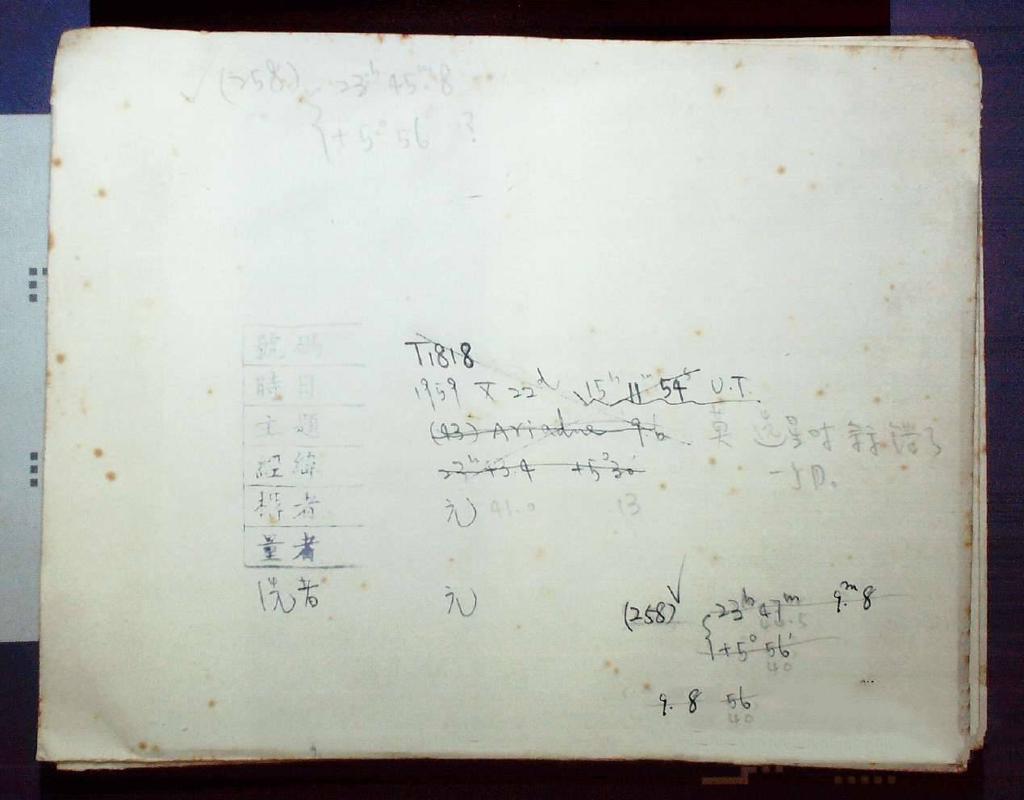 (258) 23ʰ 45ᵐ.8
+5° 56 ?
號碼 T1818
時日 1959 X 22ᵈ 15ʰ 11ᵐ 54ˢ U.T.
主題 (43) Ariadne 9.6 莫 選星時 錯了
經緯 23ʰ 43.4 +5°30' 一個月。
攝者 元 41.0 13
量者
洗者 元
(258) 23ʰ 47ᵐ 9.ᵐ8
+5° 56'
40
9.8 56
40